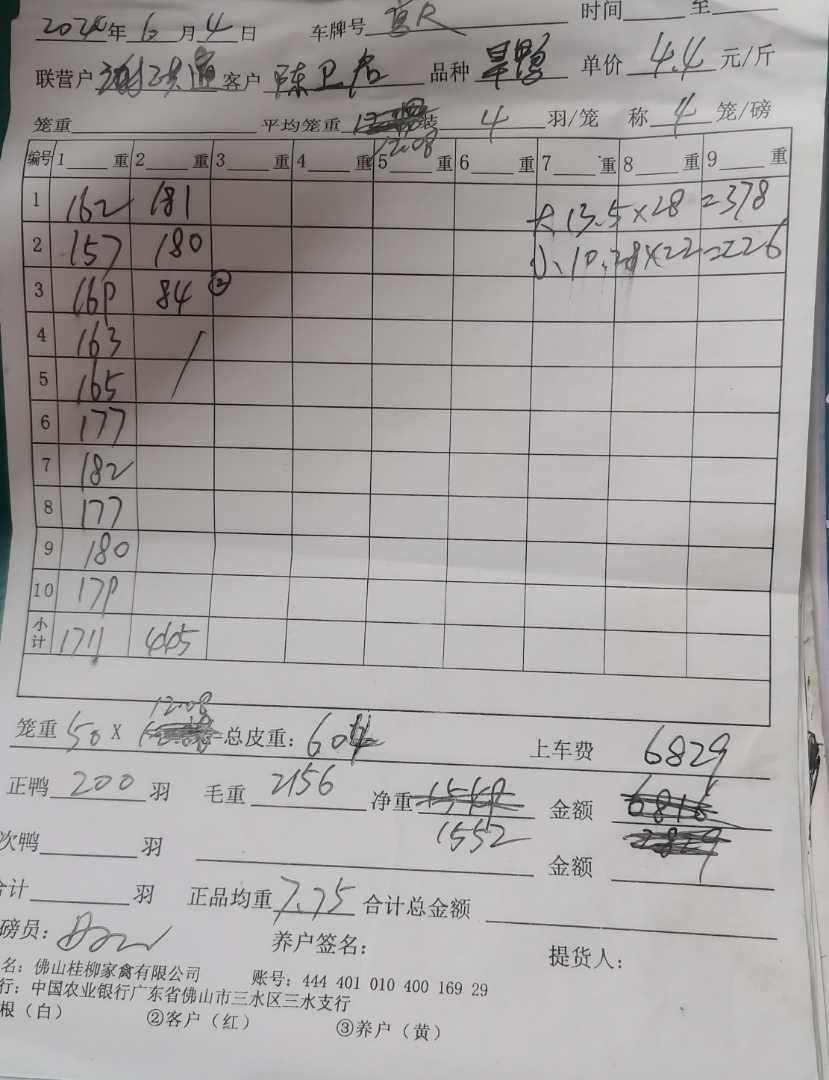 2024年6月4日 车牌号 时间 至
联营户 客户 陈卫 品种 旱鸭 单价 4.4 元/斤
笼重 平均笼重 12.08 装 4 羽/笼 称 4 笼/磅
编号 1 重 2 重 3 重 4 重 5 重 6 重 7 重 8 重 9 重
1 162 181 大 13.5×28=378
2 157 180 小 10.28×22=226
3 169 84 ②
4 163
5 165
6 177
7 182
8 177
9 180
10 179
小计 1711 445
笼重 50 × 12.08 总皮重: 604 上车费 6829
正鸭 200 羽 毛重 2156 净重 1552 金额
次鸭 羽 金额
合计 羽 正品均重 7.75 合计总金额
磅员: 养户签名: 提货人:
名: 佛山桂柳家禽有限公司 账号: 444 401 010 400 169 29
行: 中国农业银行广东省佛山市三水区三水支行
根(白) ②客户(红) ③养户(黄)